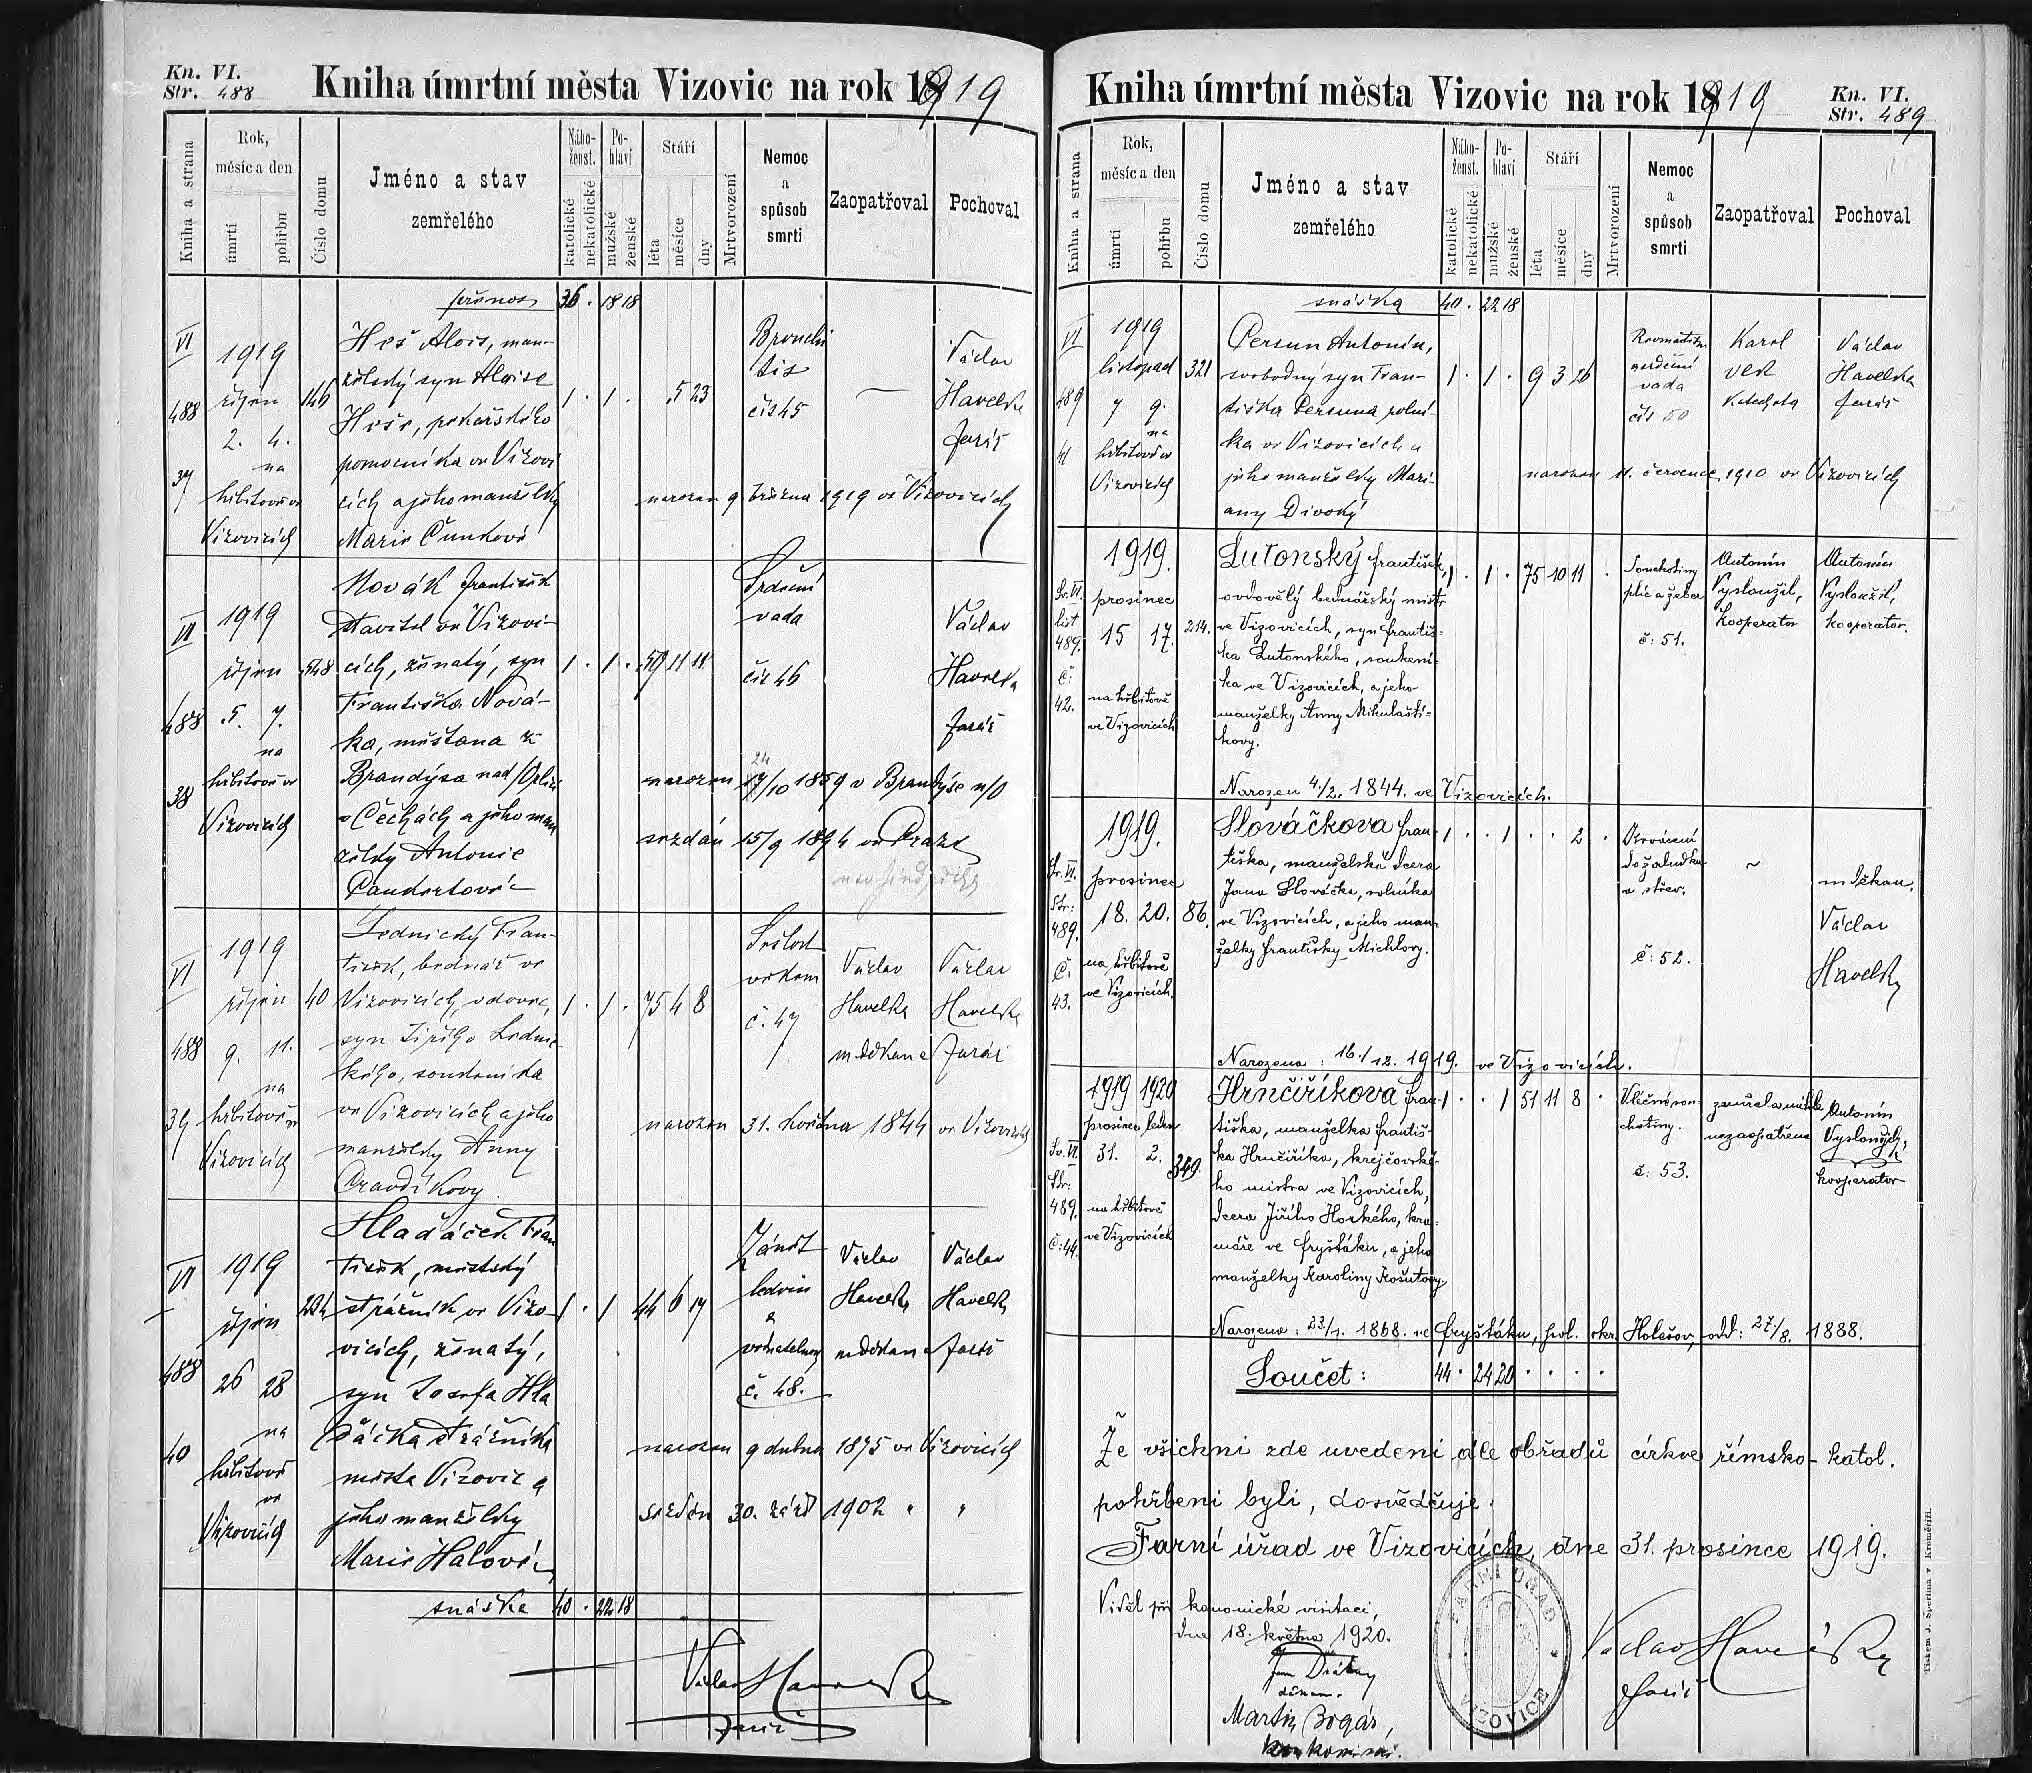 Kn. VI.
Str. 488
Kniha úmrtní města Vizovic na rok 1919
Kniha a strana
Rok,
měsíc a den
úmrtí
pohřbu
Číslo domu
Jméno a stav
zemřelého
Nábo-
ženst.
katolické
nekatolické
Po-
hlaví
mužské
ženské
Stáří
léta
měsíce
dny
Mrtvorození
Nemoc
a
spůsob
smrti
Zaopatřoval
Pochoval
přenos 36 . 18 18
VI
488
37
1919
říjen
2. 4.
na
hřbitově ve
Vizovicích
146
Heš Alois, man-
želský syn Aloise
Heše, pekařského
pomocníka ve Vizovi
cích a jeho manželky
Marie Čunkové
1 . 1 . 5 23
Bronchi
tis
čís 45
Václav
Havelka
farář
narozen 9 března 1919 ve Vizovicích
VI
488
38
1919
říjen
5. 7.
na
hřbitově ve
Vizovicích
548
Novák František
stavitel ve Vizovi-
cích, ženatý, syn
Františka Nová-
ka, měšťana z
Brandýsa nad/Orlicí
v Čechách a jeho man
želky Antonie
1 . 1 . 59 11 11
Srdeční
vada
čís 46
Václav
Havelka
farář
narozen 17/10 1859 v Brandýse n/O
24
sezdán 15/9 1894 ve Praze
VI
488
39
1919
říjen
9. 11.
na
hřbitově ve
Vizovicích
40
Lednický Fran-
tišek, bednář ve
Vizovicích, vdovec,
syn Jiřího Ledni
kého, soukeníka
ve Vizovicích a jeho
manželky Anny
Pravdíkovy
1 . 1 . 75 4 8
Sešlost
věkem
č. 47
Václav
Havelka
m děkan
Václav
Havelka
farář
narozen 31. května 1844 ve Vizovicích
VI
488
40
1919
říjen
26 28
na
hřbitově
ve
Vizovicích
224
Hlaďáček Fran
tišek, městský
strážník ve Vizo-
vicích, ženatý,
syn Josefa Hla
ďáčka strážníka
města Vizovic a
jeho manželky
Marie Halové
1 . 1 44 6 17
Zánět
ledvin
a
č. 48.
Václav
Havelka
m děkan
Václav
Havelka
farář
narozen 9 dubna 1875 ve Vizovicích
sezdán 30. září 1902 " "
snáška 40 . 22 18
Václav Havelka
farář
Kniha úmrtní města Vizovic na rok 1919
Kn. VI.
Str. 489
Kniha a strana
Rok,
měsíc a den
úmrtí
pohřbu
Číslo domu
Jméno a stav
zemřelého
Nábo-
ženst.
katolické
nekatolické
Po-
hlaví
mužské
ženské
Stáří
léta
měsíce
dny
Mrtvorození
Nemoc
a
spůsob
smrti
Zaopatřoval
Pochoval
snáška 40 . 22 18
VI
489
41
1919
listopad
7 9.
na
hřbitově ve
Vizovicích
321
Persun Antonín,
svobodný syn Fran-
tiška Persuna rolní-
ka ve Vizovicích a
jeho manželky Mari-
any Divoký
1 . 1 . 9 3 26
srdeční
vada
čís 50
Karel
Vlk
Katecheta
Václav
Havelka
farář
narozen 11. července 1910 ve Vizovicích
Sv. VI.
list
489.
č:
42.
1919.
prosinec
15 17.
na hřbitově
ve Vizovicích
214.
Lutonský František,
ovdovělý bednářský mistr
ve Vizovicích, syn Františ-
ka Lutonského, soukení-
ka ve Vizovicích, a jeho
manželky Anny Mikulaští-
kovy.
1 . 1 . 75 10 11 .
Souchotiny
plic a žeber
č: 51.
Antonín
Vysloužil,
kooperator
Antonín
Vysloužil,
kooperator.
Narozen 4/2. 1844. ve Vizovicích.
Sv. VI.
Str:
489.
č.
43.
1919.
prosinec
18. 20.
na hřbitově
ve Vizovicích.
86.
Slováčkova Fran-
tiška, manželská dcera
Jana Slováčka, rolníka
ve Vizovicích, a jeho man-
želky Františky Michlovy.
1 . . 1 . . 2 .
žaludku
a střev.
č: 52.
~
m děkan.
Václav
Havelka
Narozena: 16./12. 1919. ve Vizovicích.
Sv. VI.
Str:
489.
č: 44.
1919 1920
prosinec leden
31. 2.
na hřbitově
ve Vizovicích
349.
Hrnčiříkova Fran-
tiška, manželka Františ-
ka Hrnčiříka, krejčovské-
ho mistra ve Vizovicích,
dcera Jiřího Horkého, kra-
máře ve Fryštáku, a jeho
manželky Karoliny Košutovy.
1 . . 1 51 11 8 .
Vlečné sou-
chotiny.
č: 53.
zemřela náhle
nezaopatřena
Antonín
Vysloužil,
kooperator
Narozena: 23/1. 1868. ve Fryštáku, pol. okr. Holešov, odd: 27/8. 1888.
Součet: 44 . 24 20 . . . .
Že všichni zde uvedení dle obřadů církve římsko-katol.
pohřbeni byli, dosvědčuje:
Farní úřad ve Vizovicích, dne 31. prosince 1919.
Viděl při kanonické visitaci,
dne 18. května 1920.
děkan.
Martin Bogár,
FARNÍ ÚŘAD
VIZOVICE
Václav Havelka
farář
Tiskem J. Sperlina v Kroměříži.